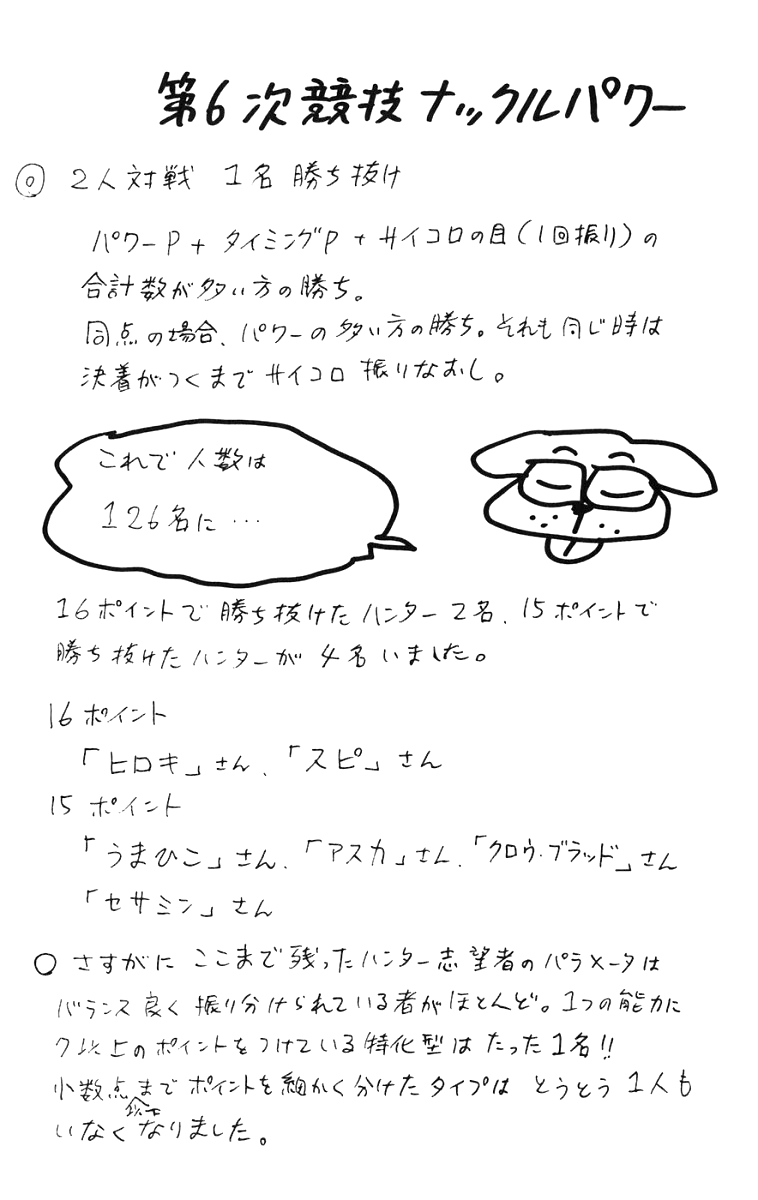 第6次競技ナックルパワー
◎ 2人対戦 1名勝ち抜け
パワーP+タイミングP+サイコロの目(1回振り)の
合計数が多い方の勝ち。
同点の場合、パワーの多い方の勝ち。それも同じ時は
決着がつくまでサイコロ振りなおし。
これで人数は
126名に…
16ポイントで勝ち抜けたハンター2名、15ポイントで
勝ち抜けたハンターが4名いました。
16ポイント
「ヒロキ」さん、「スピ」さん
15ポイント
「うまひこ」さん、「アスカ」さん、「クロウ・ブラッド」さん
「セサミン」さん
○ さすがにここまで残ったハンター志望者のパラメータは
バランス良く振り分けられている者がほとんど。1つの能力に
7以上のポイントをつけている特化型はたった1名!!
小数点まで ポイントを細かく分けたタイプは とうとう1人も
いなくなりました。